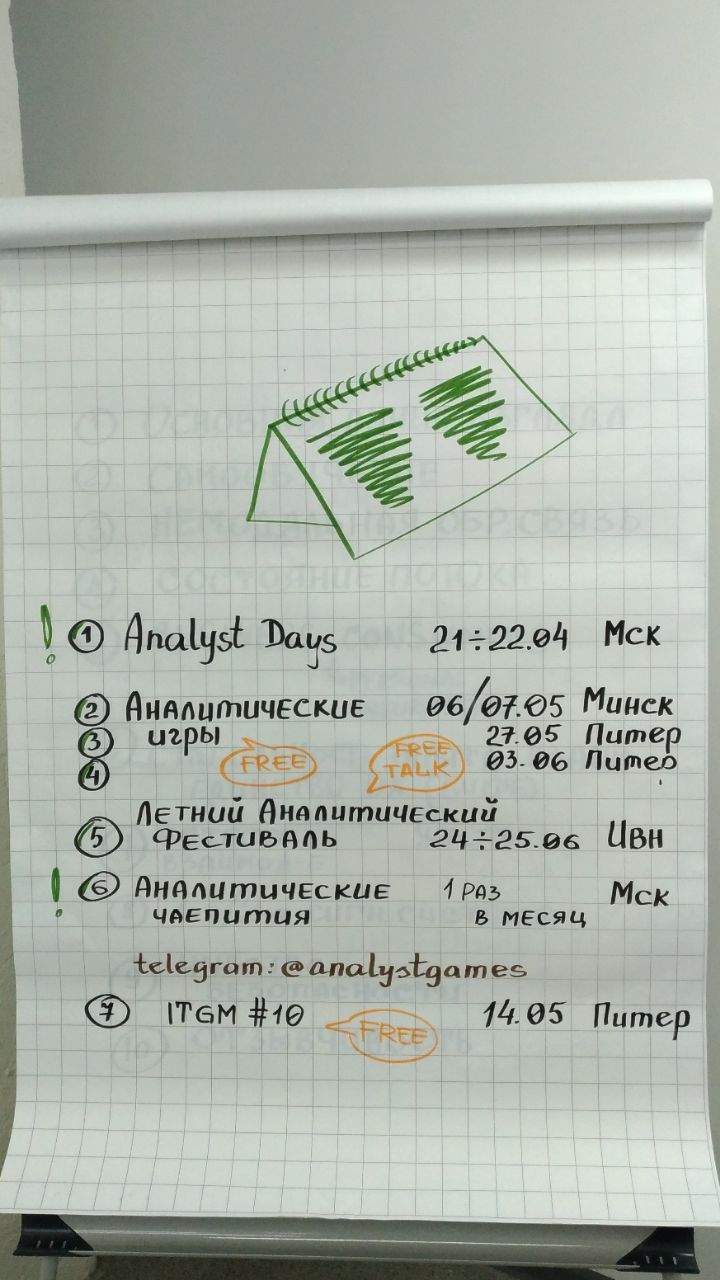 ! 1 Analyst Days 21÷22.04 Мск
2 Аналитические 06/07.05 Минск
3 игры 27.05 Питер
4 FREE FREE TALK 03.06 Питер
Летний Аналитический
5 фестиваль 24÷25.06 Ивн
! 6 Аналитические 1 раз Мск
чаепития в месяц
telegram: @analystgames
7 ITGM #10 FREE 14.05 Питер